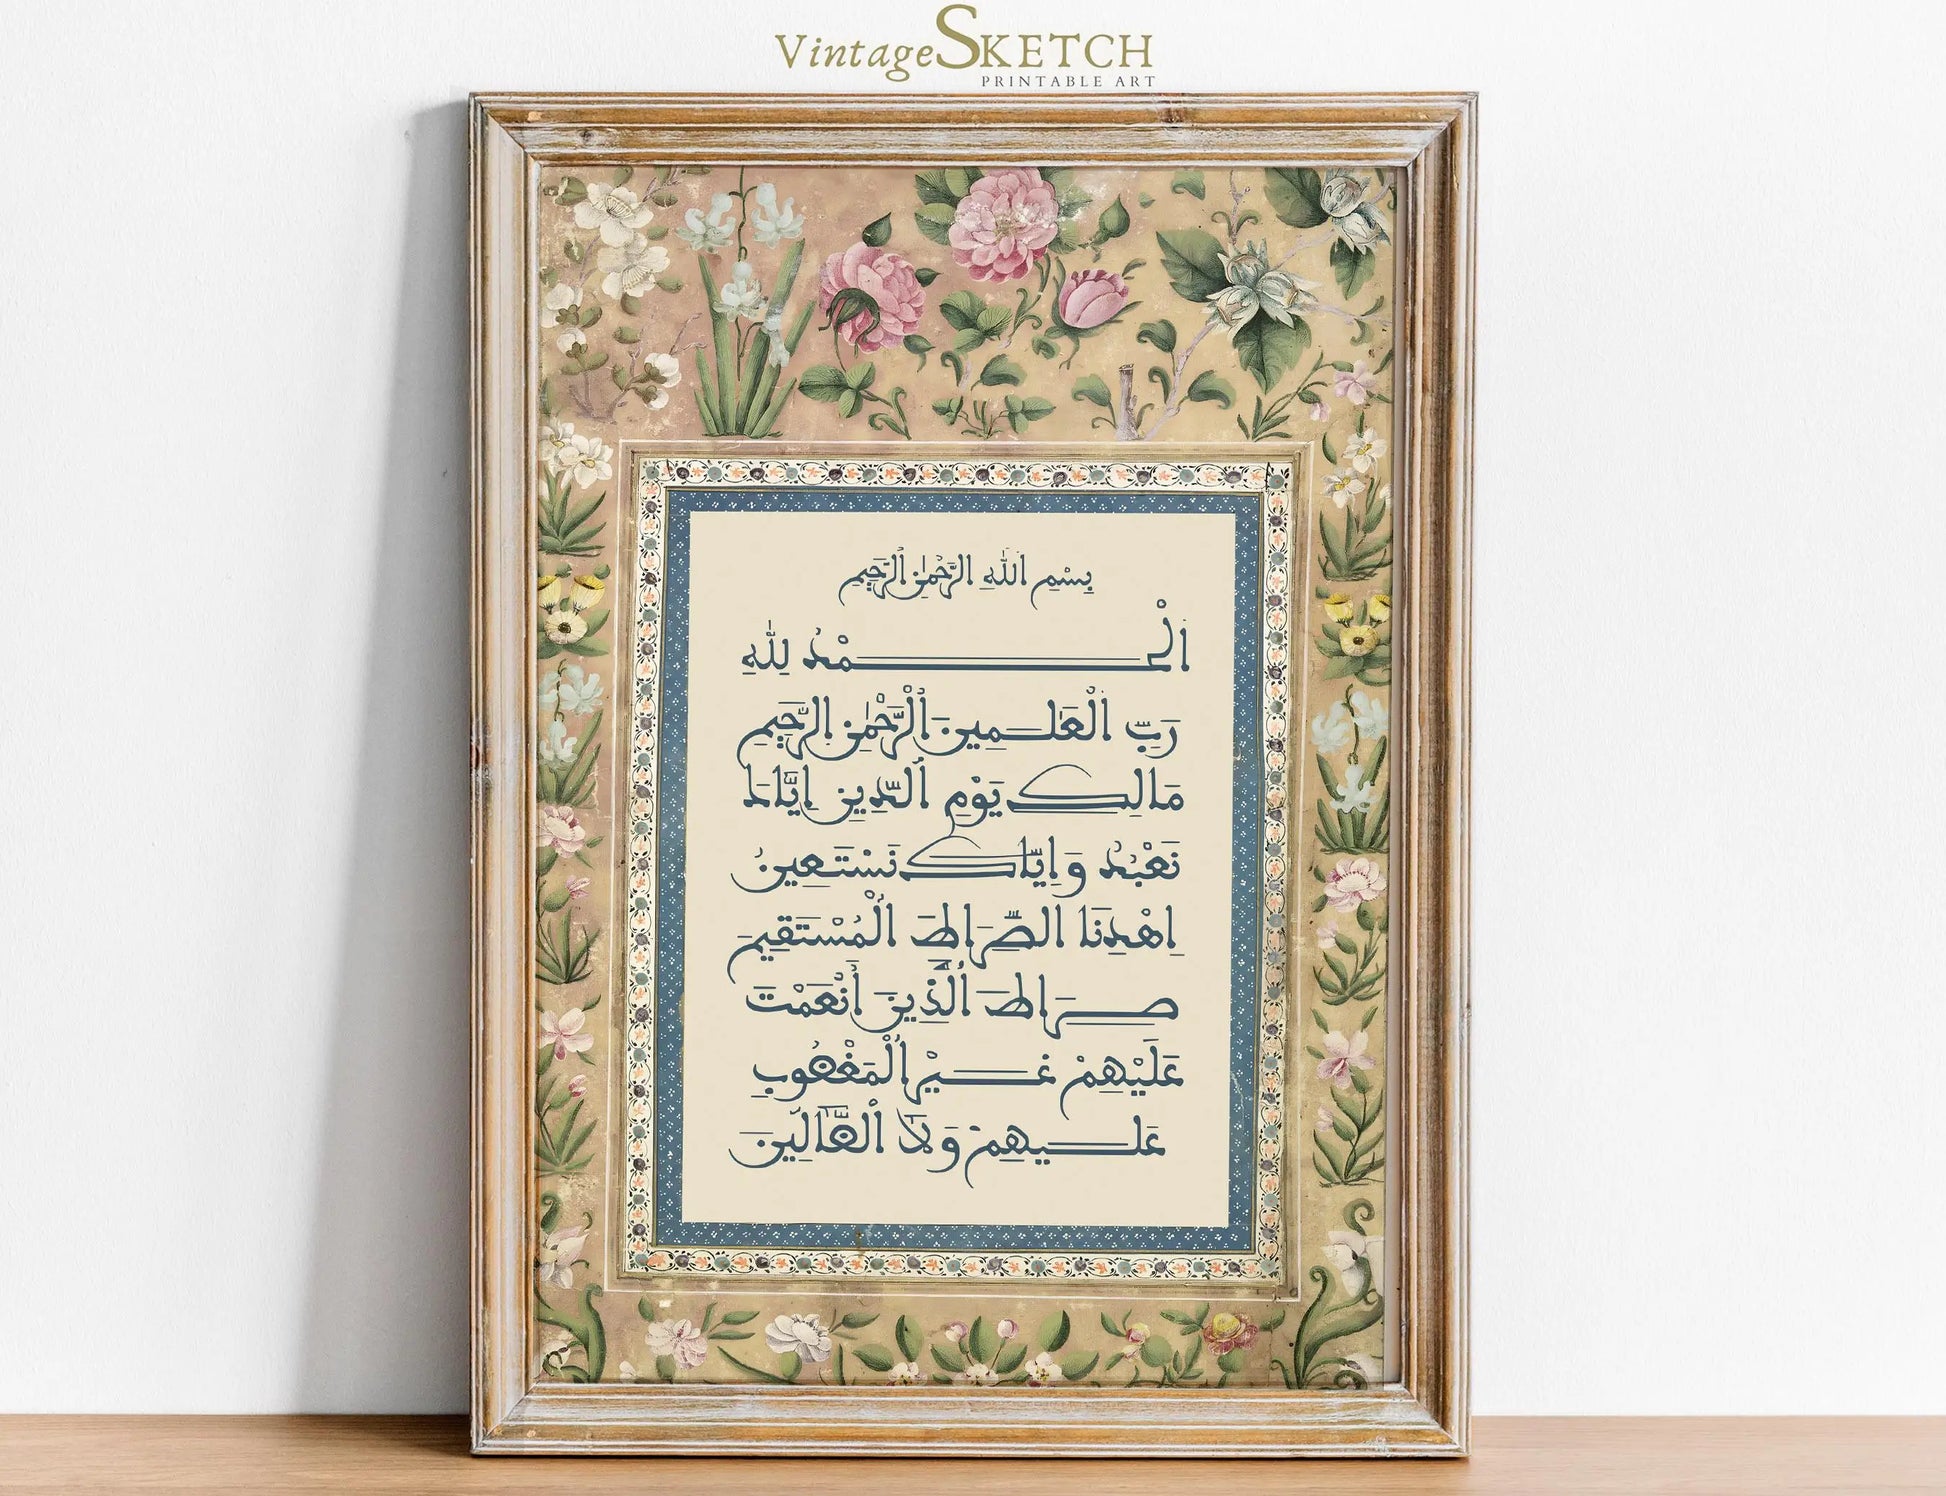 VintageSKETCH
PRINTABLE ART
بِسْمِ اللَّهِ الرَّحْمَٰنِ الرَّحِيمِ
الْحَمْدُ لِلَّهِ
رَبِّ الْعَالَمِينَ الرَّحْمَٰنِ الرَّحِيمِ
مَالِكِ يَوْمِ الدِّينِ إِيَّاكَ
نَعْبُدُ وَإِيَّاكَ نَسْتَعِينُ
اهْدِنَا الصِّرَاطَ الْمُسْتَقِيمَ
صِرَاطَ الَّذِينَ أَنْعَمْتَ
عَلَيْهِمْ غَيْرِ الْمَغْضُوبِ
عَلَيْهِمْ وَلَا الضَّالِّينَ